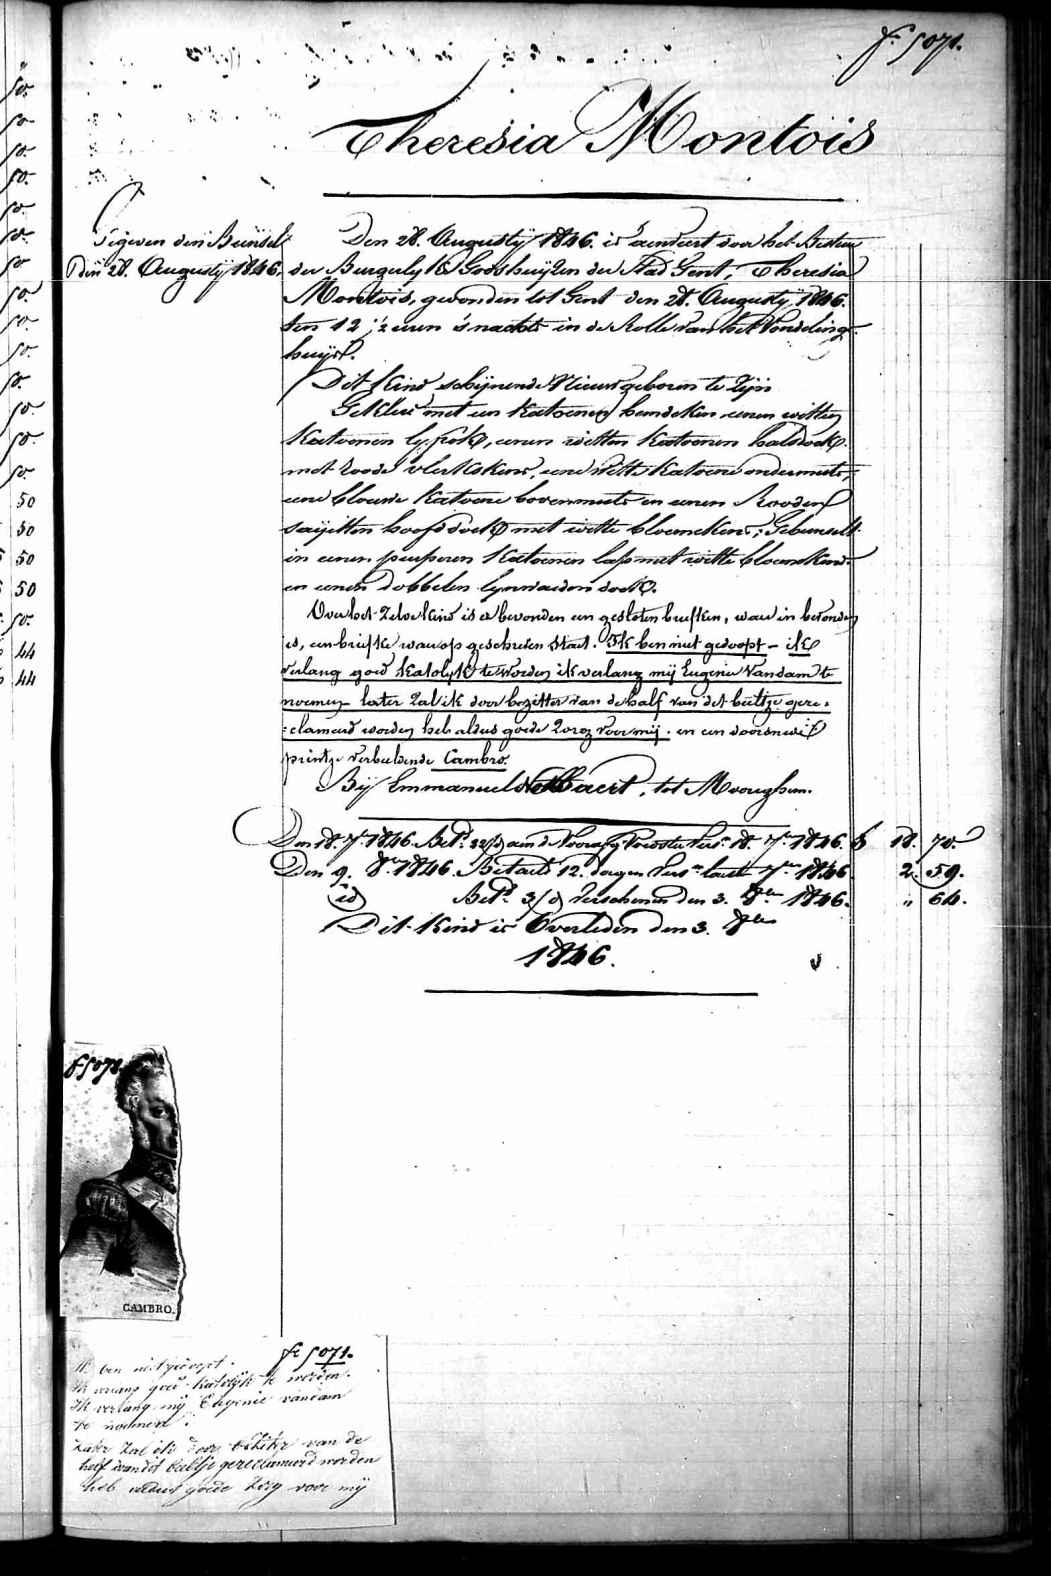 f. 5071.
Theresia Montois
Gegeven den Bunsel
Den 28. Augustij 1846.
Den 28. Augustij 1846. is aenveert door het Bestier
der Burgerlyke Godshuyzen der Stad Gent, Theresia
Montois, gevonden tot Gent den 28. Augustij 1846.
ten 12 ½ uren 's nachts in de Rolle van het Vondeling-
huys.
Dit Kind schijnende Nieuwgeboren te Zijn
Gekleed met een Katoenen hemdeken eenen witten
Katoenen lyfrok, eenen witten Katoenen halsdoek
met roode vlekskens, eene witte Katoene ondermuts,
eene blauwe Katoene bovenmuts en eenen Rooden
sayitten hoofddoek met witte bloemekens; Gebunselt
in eenen purperen Katoenen lap met witte bloemekens
en eenen dobbelen lynwaeden doek.
Over het Zelve kind is er bevonden een gesloten briefken, waer in bevonden
is, een briefke waerop geschreven staet. Ik ben niet gedoopt - ik
verlang goed katolyk te worden ik verlang mij Eugenie Vandam te
noemen later zal ik door bezitter van de half van dit beeltje gere=
=clameerd worden heb aldus goede zorg voor mij. en een doorsneden
printje verbeeldende Cambro.
Bij Emmanuel De Baert, tot Mooreghem.
Den 18. 7.bre 1846. Bet.d 22/d aen d Voorzorg Voedster Vers. 18. 7.bre 1846. f 18. 70.
Den 9. 8.bre 1846. Betaelt 12. dagen Vers. laest 7.bre 1846. 2. 59.
id Bet.d 3/d Verschenen den 3. 8.bre 1846. " 64.
Dit Kind is Overleden den 3. 8.bre
1846.
f 5071.
CAMBRO.
f. 5071.
Ik ben niet gedoopt.
Ik verlang goed katolijk te worden.
Ik verlang mij Eugenie vandam
te noemen.
Later Zal ik door bezitter van de
helf van dit beeltje gereclameerd worden
heb aldus goede Zorg voor mij
50
50
50
50
44
44